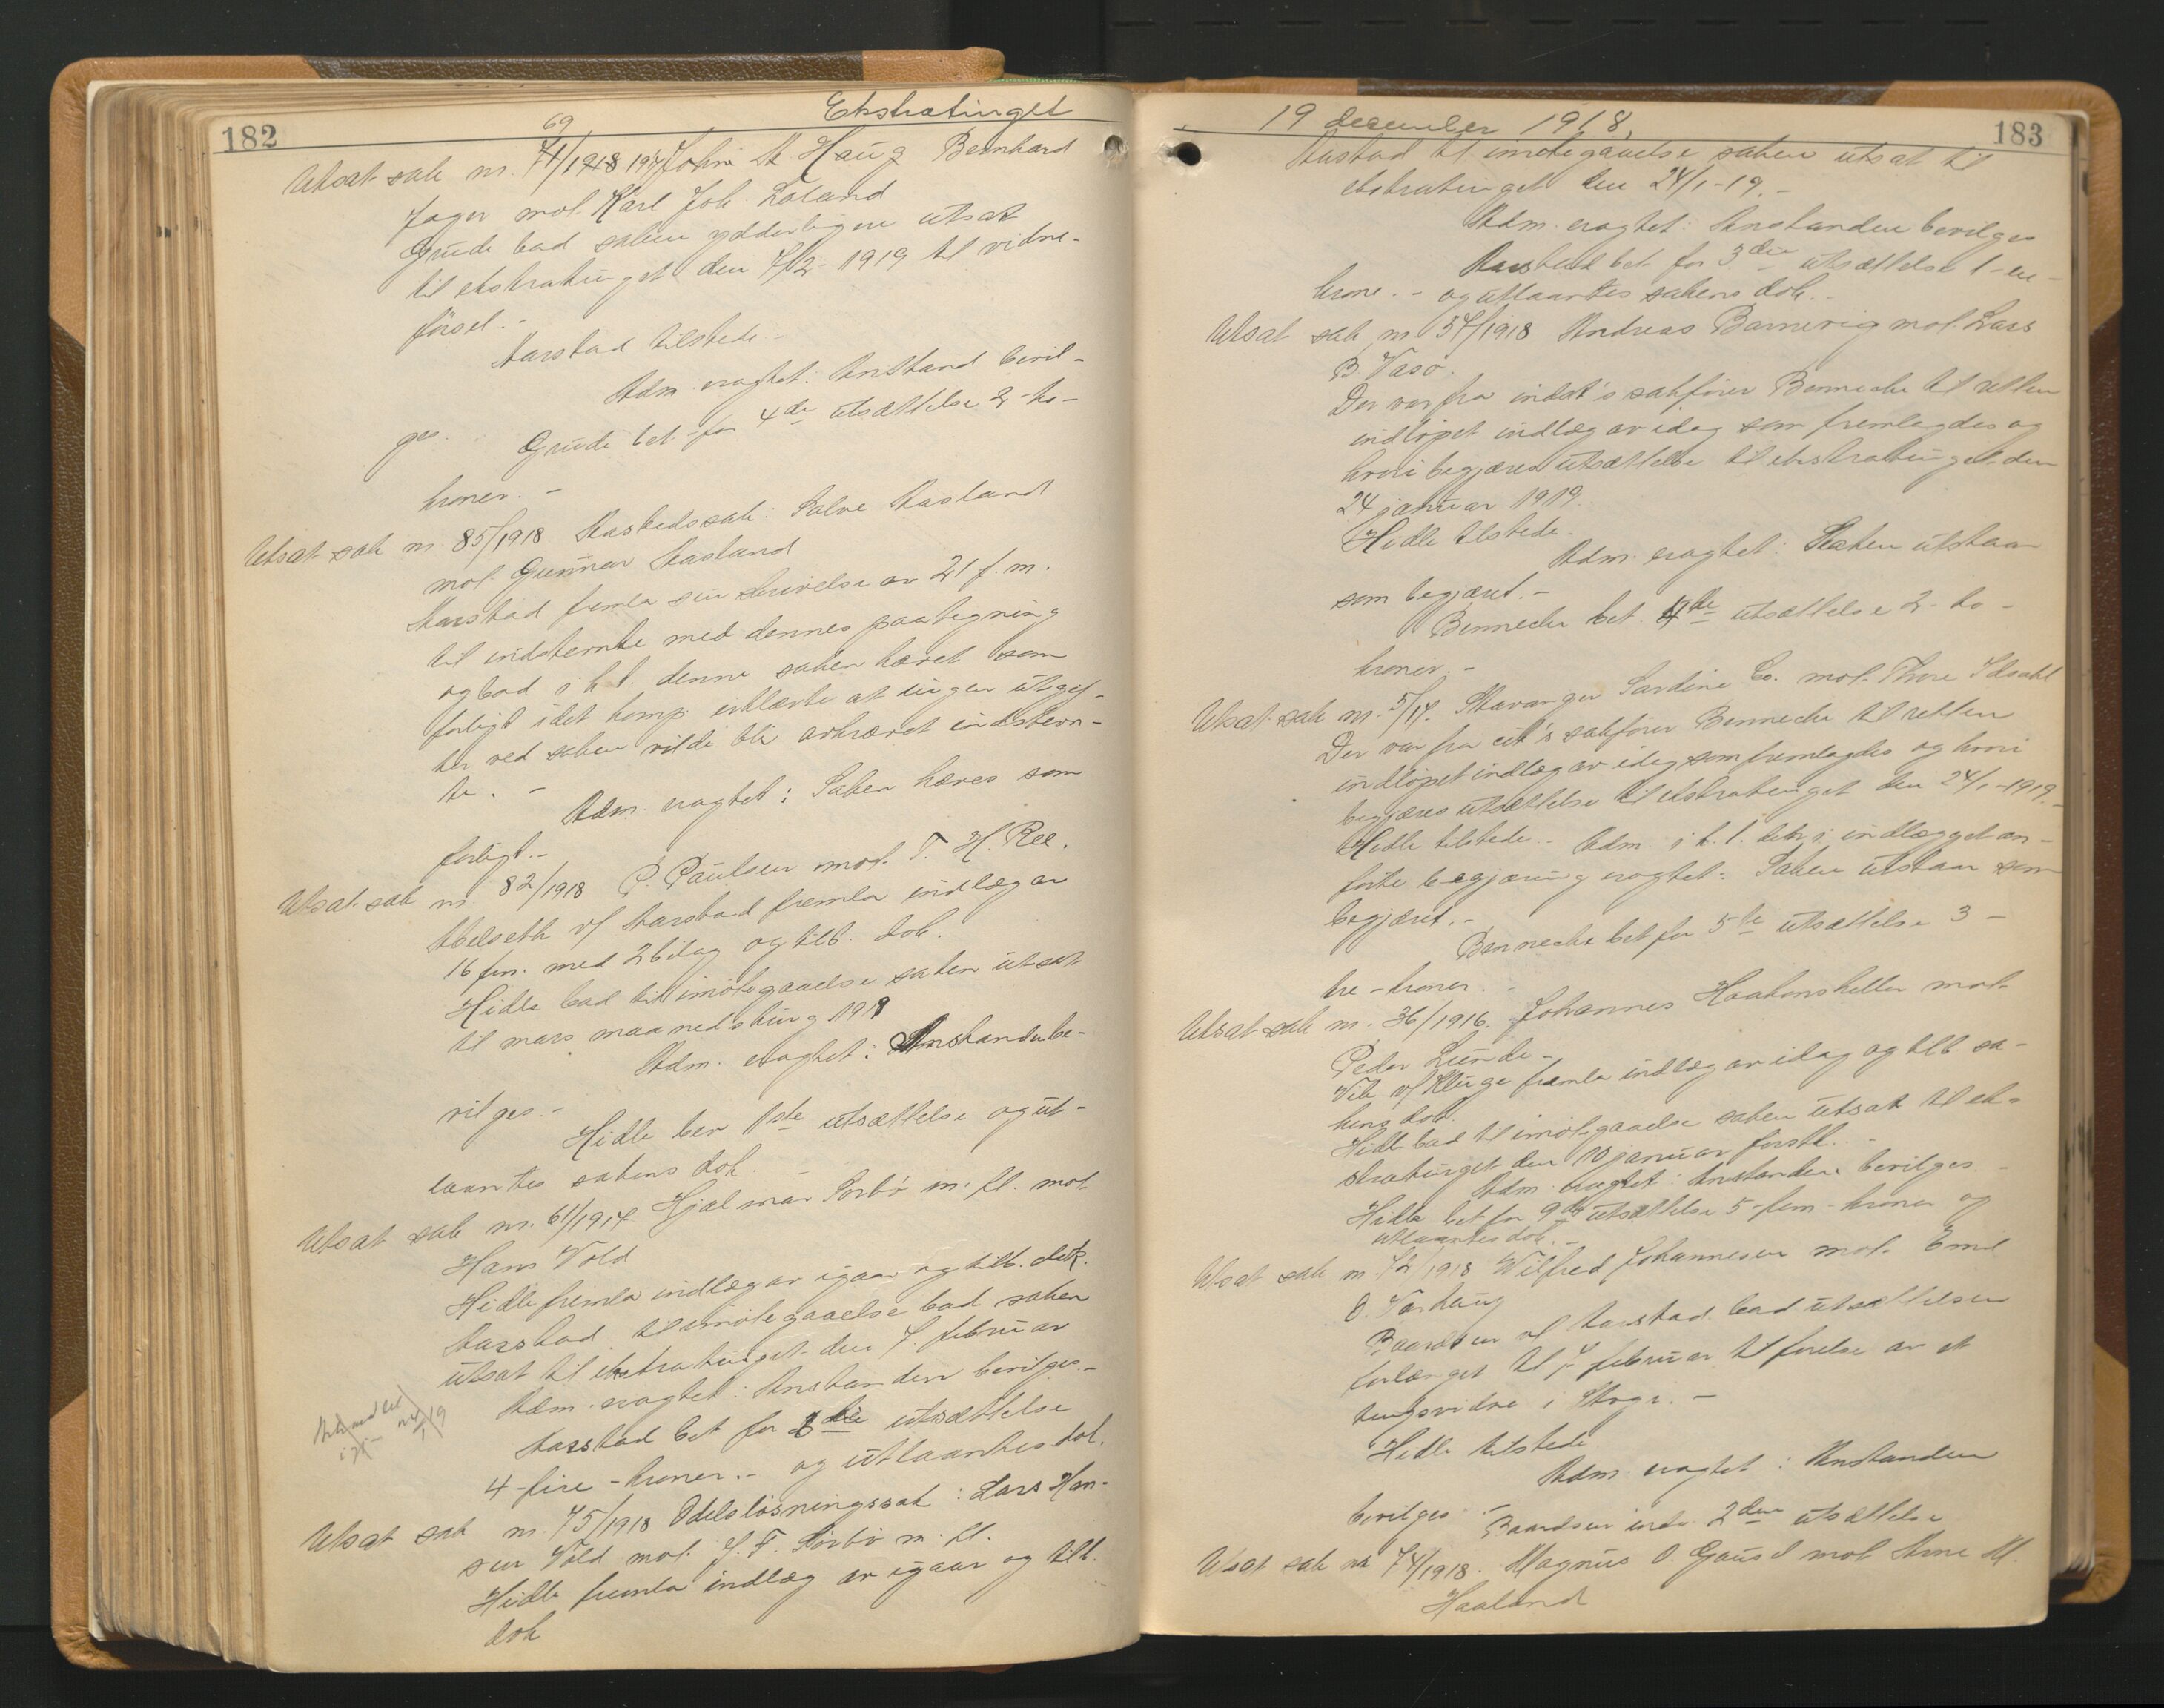 182
Ekstratinget
69
Utsat sak nr. 71/1918 1917 John A Haug Bernhard
Jager mot Karl Joh. Loland
Grude bad saken ydderligere utsat
til ekstratinget den 7/2- 1919 til vidne-
førsel.-
Aarstad tilstede-
Adm. eragtet: Anstand bevil-
ges.
Grude bet for 4de utsættelse 2-to-
kroner.-
Utsat sak nr 85/1918 Aastedssak: Salve Aasland
mot Gunnar Aasland
Aarstad fremla sin skrivelse av 21 f.m.
til indstevnte med dennes paategning
og bad i h.t. denne saken hævet som
forligt idet komp. erklærte at ingen utgif-
ter ved saken vilde bli avkrævet indstevn-
te.-
Adm. eragtet: Saken hæves som
forligt.-
Utsat sak nr. 82/1918 P. Paulsen mot T. H. Ree.
Abelseth v/ Aarstad fremla indlæg av
16 ds. med 2 bilag og tilb. dok.
Hidle bad til imøtegaaelse saken utsat
til mars maanedsting 1919
Adm. eragtet: Anstanden be-
vilges.-
Hidle ber 1ste utsættelse og ut-
laantes sakens dok.-
Utsat sak nr. 61/1917 Hjalmar Sørbø m. fl. mot
Hans Vold
Hidle fremla indlæg av igaar og tilb. dok.
Aarstad til imøtegaaelse bad saken
utsat til ekstratinget den 7 februar
Adm. eragtet: Anstanden bevilges.-
Aarstad bet for 8de utsættelse
4-fire-kroner.- og utlaantes dok.
Behandlet
24/1 19
Utsat sak nr. 75/1918 Odelsløsningssak: Lars Han-
sen Vold mot J. F. Sørbø m. fl.
Hidle fremla indlæg av igaar og tilb.
dok
19 december 1918.
183
Aastad til imøtegaaelse saken utsat til
ekstratinget den 24/1-19.-
Adm. eragtet: Anstanden bevilges
Aarstad bet. for 3die utsættelse 1-en-
krone.- og utlaantes sakens dok.-
Utsat sak nr 57/1918 Andreas Barnevig mot Lars
B Vasø.
Der var fra indst's sakfører Bennecke til retten
indløpet indlæg av idag som fremlagdes og
hvori begjæres utsættelse til ekstratinget den
24 januar 1919.
Hidle tilstede.
Adm. eragtet: Saken utstaar
som begjæret.-
Bennecke bet. 4de utsættelse 2-to-
kroner.-
Utsat sak nr. 5/17. Stavanger Sardine Co. mot Thore Idsahl
Der var fra cit's sakfører Bennecke til retten
indløpet indlæg av idag som fremlagdes og hvori
begjæres utsættelse til ekstratinget den 24/1-1919.-
Hidle tilstede.- Adm. i h.t. den i indlægget an-
førte begjæring eragtet: Saken utstaar som
begjæret.-
Bennecke bet for 5te utsættelse 3-
tre-kroner.-
Utsat sak nr. 36/1916. Johannes Haakonsheller mot
Peder Lunde-
Vik v/ Kluge fremla indlæg av idag og tilb. sa-
kens dok.
Hidle bad til imøtegaaelse saken utsat til ek-
stratinget den 10 januar førstk.-
Adm eragtet: Anstanden bevilges
Hidle bet for 9de utsættelse 5-fem-kroner og
utlaantes dok.-
Utsat sak nr. 72/1918 Wilfred Johannesen mot Emil
O. Varhaug
Baardsen v/ Aarstad bad utsættelsen
forlænget til 7 februar til førelse av et
tingsvidne i Stege.-
Hidle tilstede
Adm eragtet: Anstanden
bevilges.-
Baardsen indr. 2den utsættelse
Utsat sak nr 74/1918. Magnus O. Gausel mot Arne M.
Haaland